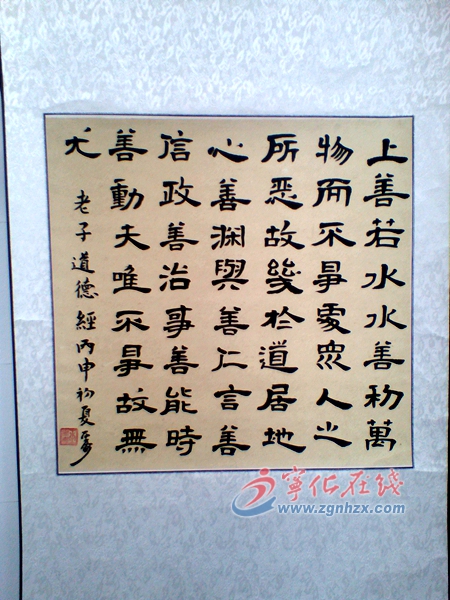 上善若水水善利萬
物而不爭處眾人之
所恶故幾於道居地
心善渊與善仁言善
信政善治事善能時
善動夫唯不爭故無
尤
老子道德經丙申初夏
寧化在线
www.zgnhzx.com